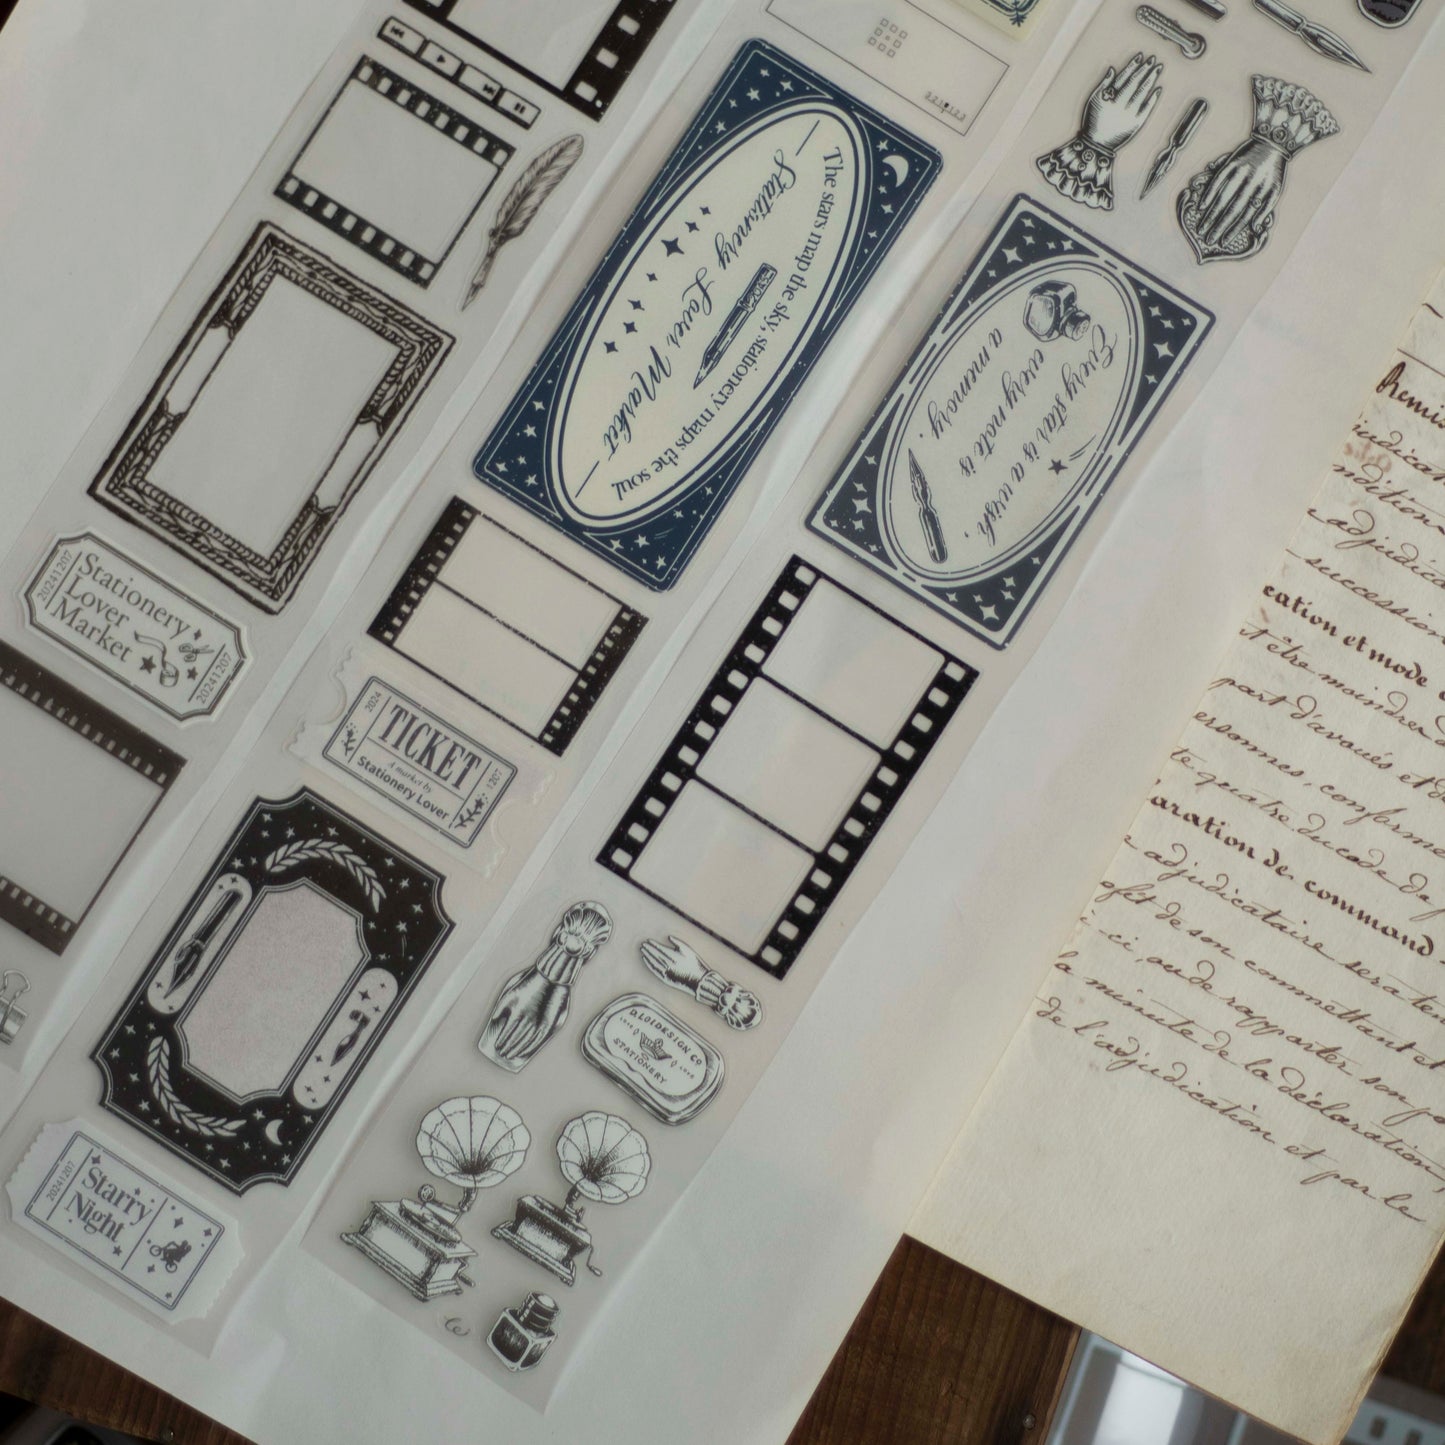 22.10.122
The stars map the sky, stationery maps the soul
Stationery Lover Market
2045
Every star is a wish,
every note is
a memory.
20241207
Stationery
Lover
Market
20241207
2024
TICKET
A market by
Stationery Lover
1207
D.LOIDESIGN CO
LOVE
LOVE
STATIONERY
20241207
Starry
Night
Remis
judican
ndition
adjudic
succession
cation et mode
être moindre d
part d'avoués et d
essomes, conforme
te quatre du code de
aration de command
adjudicataire sera ten
de son commettant et
-ci, ou de rapporter son po
la minute de la déclaration
de l'adjudication et par le